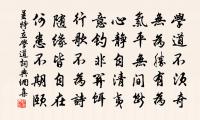 學道不須奇
無為勝有為
氣平無間斷
心靜自清夷
意釣非 餌
行歌不為詩
隨緣皆自在
何患不期頤
學道詞